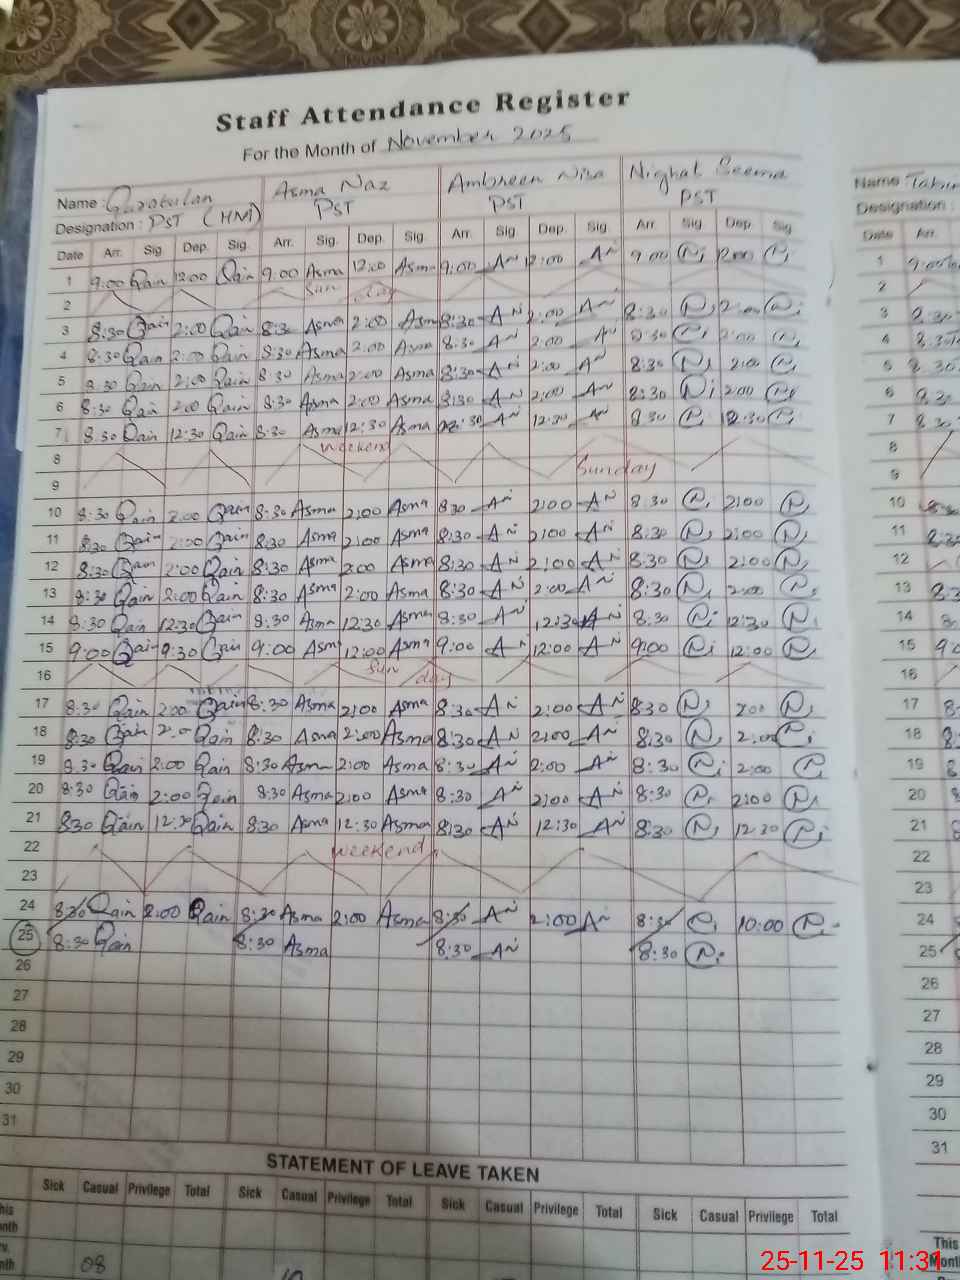 Staff Attendance Register
For the Month of November 2025
Name : Quratulan Asma Naz Ambreen Nisa Nighat Seema Name
Designation : PST (HM) PST PST PST Designation :
Date Arr. Sig. Dep. Sig. Arr. Sig. Dep. Sig. Arr. Sig. Dep. Sig. Arr. Sig. Dep. Sig. Date Arr.
1 9:00 Qain 12:00 Qain 9:00 Asma 12:00 Asma 9:00 AN 12:00 AN 9:00 N 12:00 N 1
2 Sun day 2
3 8:30 Qain 2:00 Qain 8:30 Asma 2:00 Asma 8:30 AN 2:00 AN 8:30 N 2:00 N 3 8:30
4 8:30 Qain 2:00 Qain 8:30 Asma 2:00 Asma 8:30 AN 2:00 AN 8:30 N 2:00 N 4 8:30
5 8:30 Qain 2:00 Qain 8:30 Asma 2:00 Asma 8:30 AN 2:00 A 8:30 N 2:00 N 5 8:30
6 8:30 Qain 2:00 Qain 8:30 Asma 2:00 Asma 8:30 AN 2:00 AN 8:30 N 2:00 N 6 8:30
7 8:30 Qain 12:30 Qain 8:30 Asma 12:30 Asma 8:30 AN 12:30 AN 8:30 N 12:30 N 7 8:30
8 weekend 8
9 Sunday 9
10 8:30 Qain 2:00 Qain 8:30 Asma 2:00 Asma 8:30 AN 2:00 AN 8:30 N 2:00 N 10
11 8:30 Qain 2:00 Qain 8:30 Asma 2:00 Asma 8:30 AN 2:00 AN 8:30 N 2:00 N 11
12 8:30 Qain 2:00 Qain 8:30 Asma 2:00 Asma 8:30 AN 2:00 AN 8:30 N 2:00 N 12
13 8:30 Qain 2:00 Qain 8:30 Asma 2:00 Asma 8:30 AN 2:00 AN 8:30 N 2:00 N 13
14 8:30 Qain 12:30 Qain 8:30 Asma 12:30 Asma 8:30 AN 12:30 AN 8:30 N 12:30 N 14
15 9:00 Qain 9:30 Qain 9:00 Asma 12:00 Asma 9:00 AN 12:00 AN 9:00 N 12:00 N 15
16 Sun day 16
17 8:30 Qain 2:00 Qain 8:30 Asma 2:00 Asma 8:30 AN 2:00 AN 8:30 N 2:00 N 17
18 8:30 Qain 2:00 Qain 8:30 Asma 2:00 Asma 8:30 AN 2:00 AN 8:30 N 2:00 N 18
19 8:30 Qain 2:00 Qain 8:30 Asma 2:00 Asma 8:30 AN 2:00 AN 8:30 N 2:00 N 19
20 8:30 Qain 2:00 Qain 8:30 Asma 2:00 Asma 8:30 AN 2:00 AN 8:30 N 2:00 N 20
21 8:30 Qain 12:30 Qain 8:30 Asma 12:30 Asma 8:30 AN 12:30 AN 8:30 N 12:30 N 21
22 weekend 22
23 23
24 8:30 Qain 2:00 Qain 8:30 Asma 2:00 Asma 8:30 AN 2:00 AN 8:30 N 10:00 N 24
25 8:30 Qain 8:30 Asma 8:30 AN 8:30 N 25
26 26
27 27
28 28
29 29
30 30
31 31
STATEMENT OF LEAVE TAKEN
Sick Casual Privilege Total Sick Casual Privilege Total Sick Casual Privilege Total Sick Casual Privilege Total
This Month
08
25-11-25 11:31